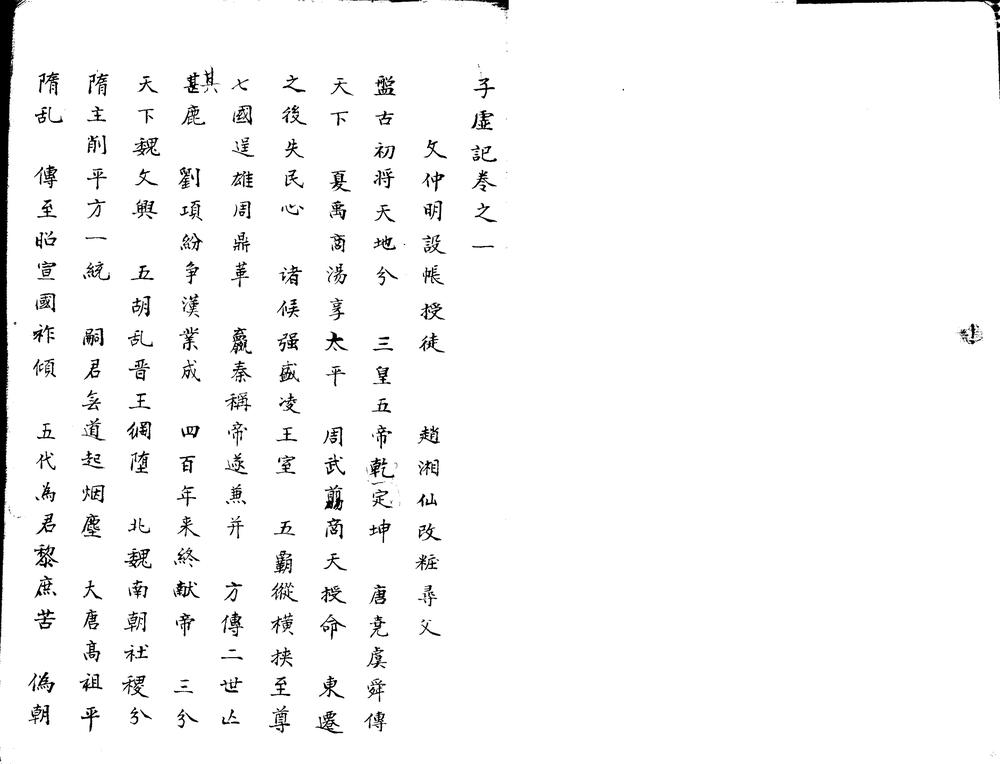 子虛記卷之一
文仲明設帳授徒　趙湘仙改粧尋父
盤古初將天地分　三皇五帝乾定坤　唐堯虞舜傳
天下　夏禹商湯享太平　周武翦商天授命　東遷
之後失民心　诸侯强盛凌王室　五霸縱横挾至尊
七國逞雄周鼎革　嬴秦稱帝遂兼并　方傳二世亾
其鹿　劉項紛争漢業成　四百年来終献帝　三分
天下魏文興　五胡乱晋王綱墮　北魏南朝社稷分
隋主削平方一統　嗣君無道起烟塵　大唐高祖平
隋乱　傳至昭宣國祚傾　五代為君黎庶苦　偽朝